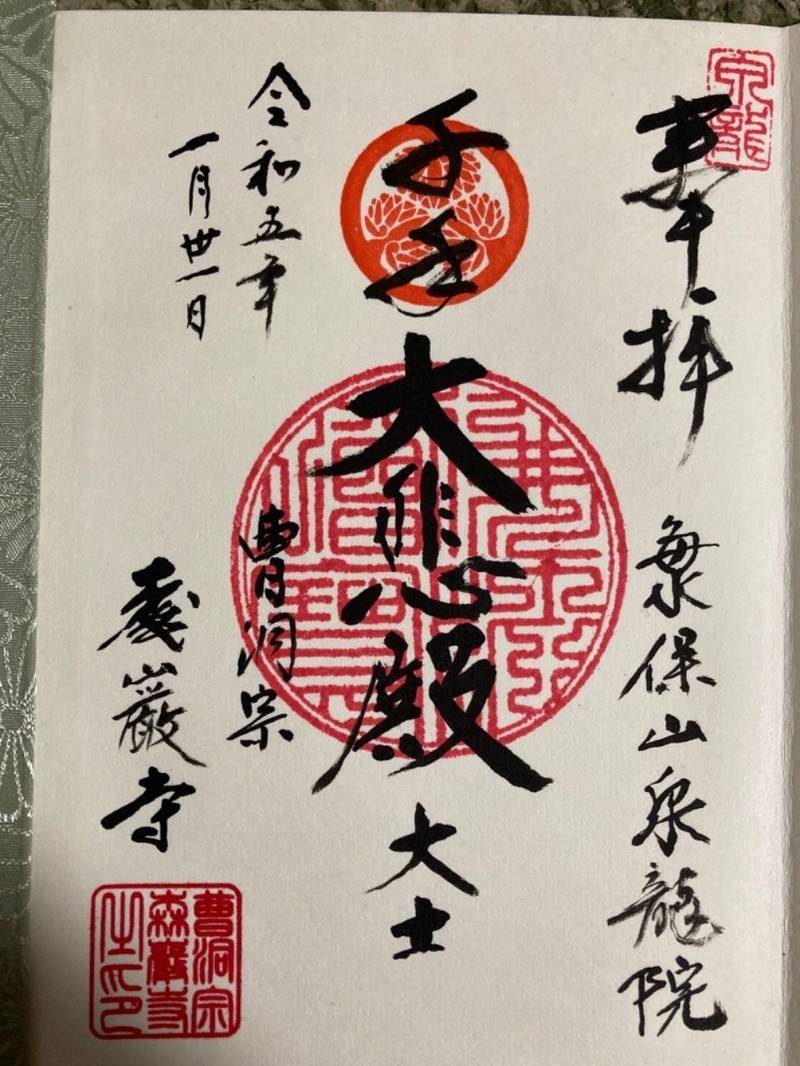 泉龍
奉拝
繁保山泉龍院
千手
大悲殿
大士
令和五年
一月卅一日
曹洞宗
森巖寺
曹洞宗
森巖寺
之印